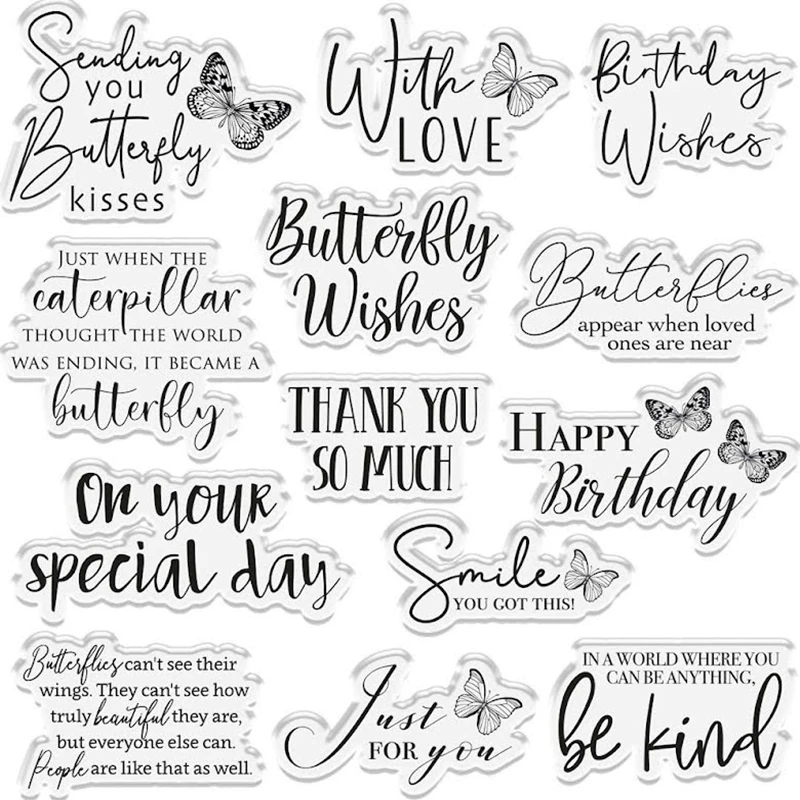 Sending
you
Butterfly
kisses
With
LOVE
Birthday
Wishes
Butterfly
Wishes
JUST WHEN THE
caterpillar
THOUGHT THE WORLD
WAS ENDING, IT BECAME A
butterfly
Butterflies
appear when loved
ones are near
THANK YOU
SO MUCH
HAPPY
Birthday
On your
special day
Smile
YOU GOT THIS!
Butterflies can't see their
wings. They can't see how
truly beautiful they are,
but everyone else can.
People are like that as well.
Just
FOR you
IN A WORLD WHERE YOU
CAN BE ANYTHING,
be kind